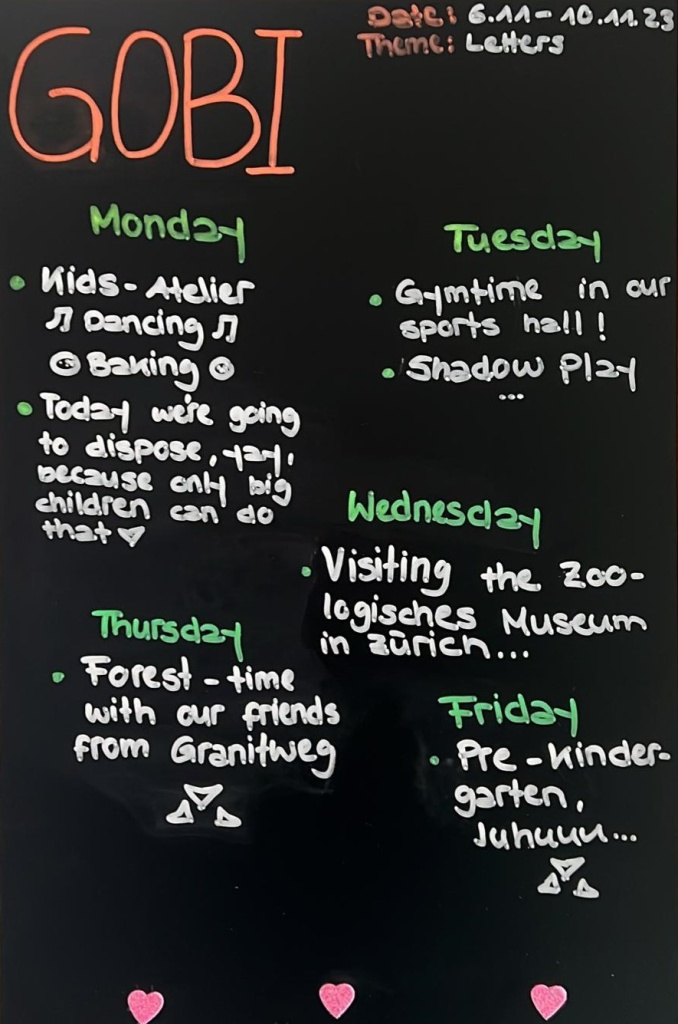 GOBI
Date: 6.11 - 10.11.23
Theme: Letters
Monday
Kids - Atelier
Dancing
Baking
Today we're going
to dispose, yay,
because only big
children can do
that
Tuesday
Gymtime in our
sports hall!
Shadow Play
...
Wednesday
Visiting the Zoo-
logisches Museum
in Zürich...
Thursday
Forest - time
with our friends
from Granitweg
Friday
Pre - Kinder-
garten,
Juhuuu...